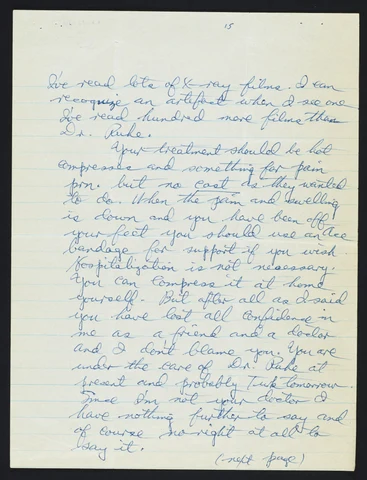 15
I've read lots of X-ray films. I can
recognize an artifact when I see one
I've read hundred more films than
Dr. Ruhe.
Your treatment should be hot
compresses and something for pain
prn. but no cast as they wanted
to do. When the pain and swelling
is down and you have been off
your feet you should use an Ace
bandage for support if you wish.
Hospitalization is not necessary.
You can compress it at home
yourself. But after all as I said
you have lost all confidence in
me as a friend and a doctor
and I don't blame you. You are
under the care of Dr. Ruhe at
present and probably tomorrow.
Since I'm not your doctor I
have nothing further to say and
of course no right at all to
say it.
(next page)